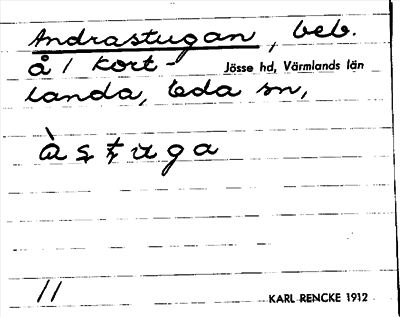 Andrastugan, beb.
å 1 kort - Jösse hd, Värmlands län
landa, Eda sn,
àstuga
11
KARL RENCKE 1912